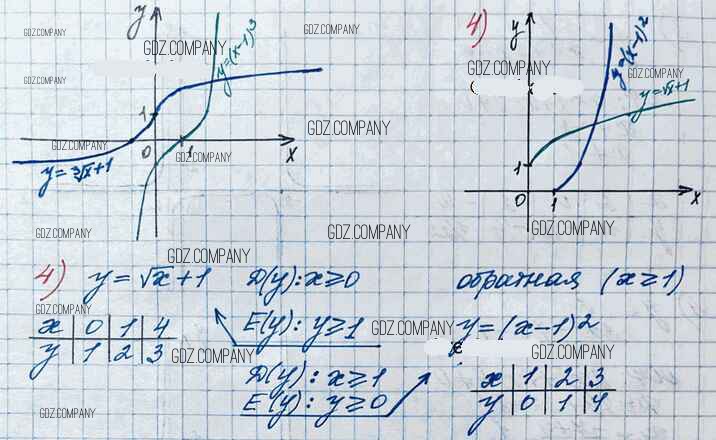 y
GDZ.COMPANY
GDZ.COMPANY
GDZ.COMPANY
y=(x-1)³
GDZ.COMPANY
1
GDZ.COMPANY
GDZ.COMPANY
0
1
x
GDZ.COMPANY
y=∛x+1
GDZ.COMPANY
4)
y
GDZ.COMPANY
y=(x-1)²
GDZ.COMPANY
y=√x+1
1
0
1
x
GDZ.COMPANY
GDZ.COMPANY
GDZ.COMPANY
4) y=√x+1 D(y): x≥0 обратная (x≥1)
GDZ.COMPANY
E(y): y≥1 y=(x-1)²
GDZ.COMPANY
x 0 1 4
y 1 2 3
GDZ.COMPANY
GDZ.COMPANY
D(y): x≥1
E(y): y≥0
x 1 2 3
y 0 1 4
GDZ.COMPANY
GDZ.COMPANY